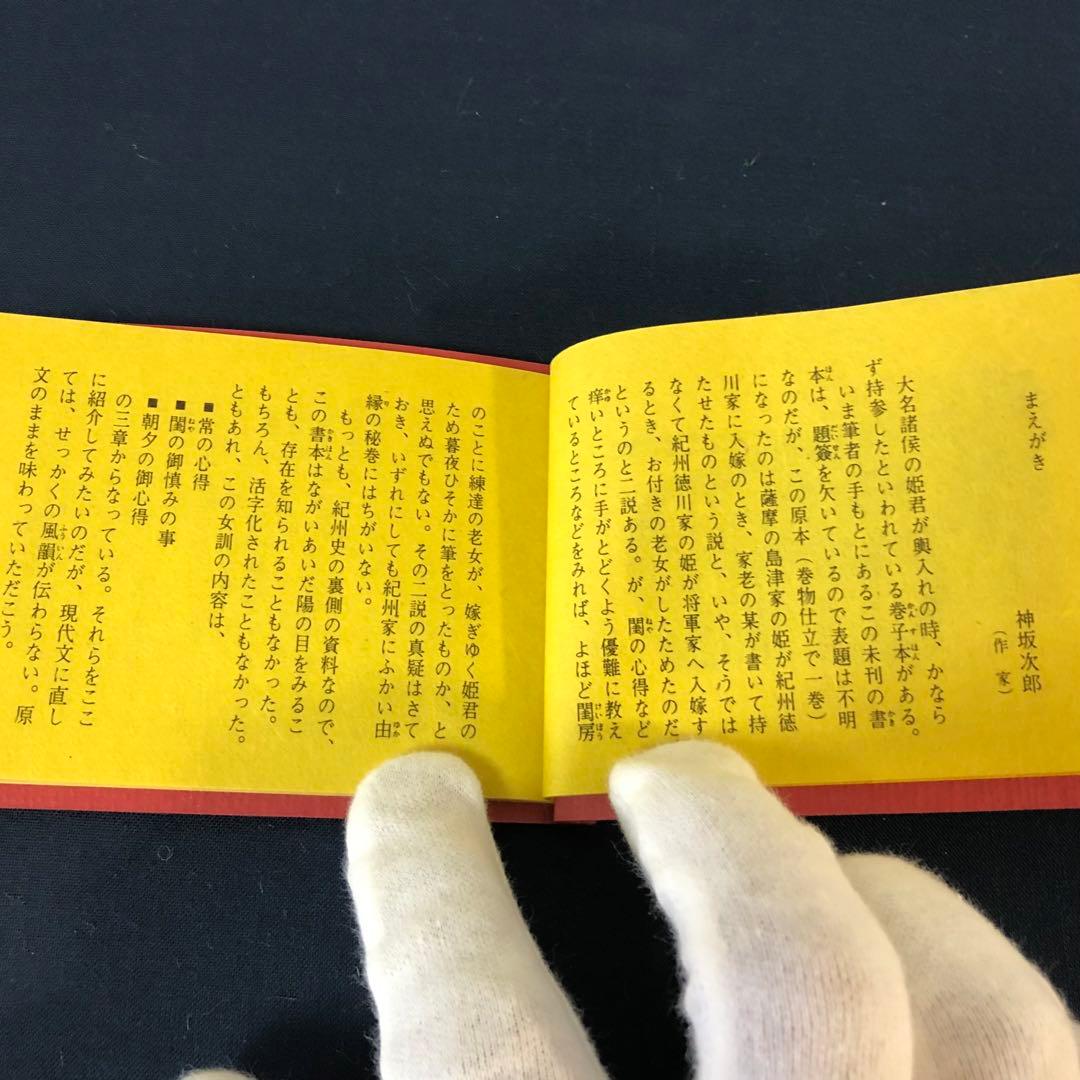 まえがき
神坂次郎
(作家)
大名諸侯の姫君が輿入れの時、かなら
ず持参したといわれている巻子本がある。
いま筆者の手もとにあるこの未刊の書
本は、題簽を欠いているので表題は不明
なのだが、この原本(巻物仕立で一巻)
になったのは薩摩の島津家の姫が紀州徳
川家に入嫁のとき、家老の某が書いて持
たせたものという説と、いや、そうでは
なくて紀州徳川家の姫が将軍家へ入嫁す
るとき、お付きの老女がしたためたのだ
というのと二説ある。が、閨の心得など
痒いところに手がとどくよう優難に教え
ているところなどをみれば、よほど閨房
のことに練達の老女が、嫁ぎゆく姫君の
ため暮夜ひそかに筆をとったものか、と
思えぬでもない。その二説の真疑はさて
おき、いずれにしても紀州家にふかい由
縁の秘巻にはちがいない。
もっとも、紀州史の裏側の資料なので、
この書本はながいあいだ陽の目をみるこ
とも、存在を知られることもなかった。
もちろん、活字化されたこともなかった。
ともあれ、この女訓の内容は、
■常の心得
■閨の御慎みの事
■朝夕の御心得
の三章からなっている。それらをここ
に紹介してみたいのだが、現代文に直し
ては、せっかくの風韻が伝わらない。原
文のままを味わっていただこう。